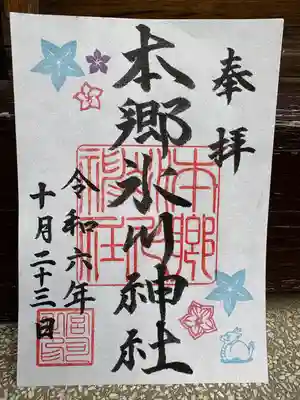 奉拝
本郷氷川神社
令和六年
十月二十三日
本郷氷川神社